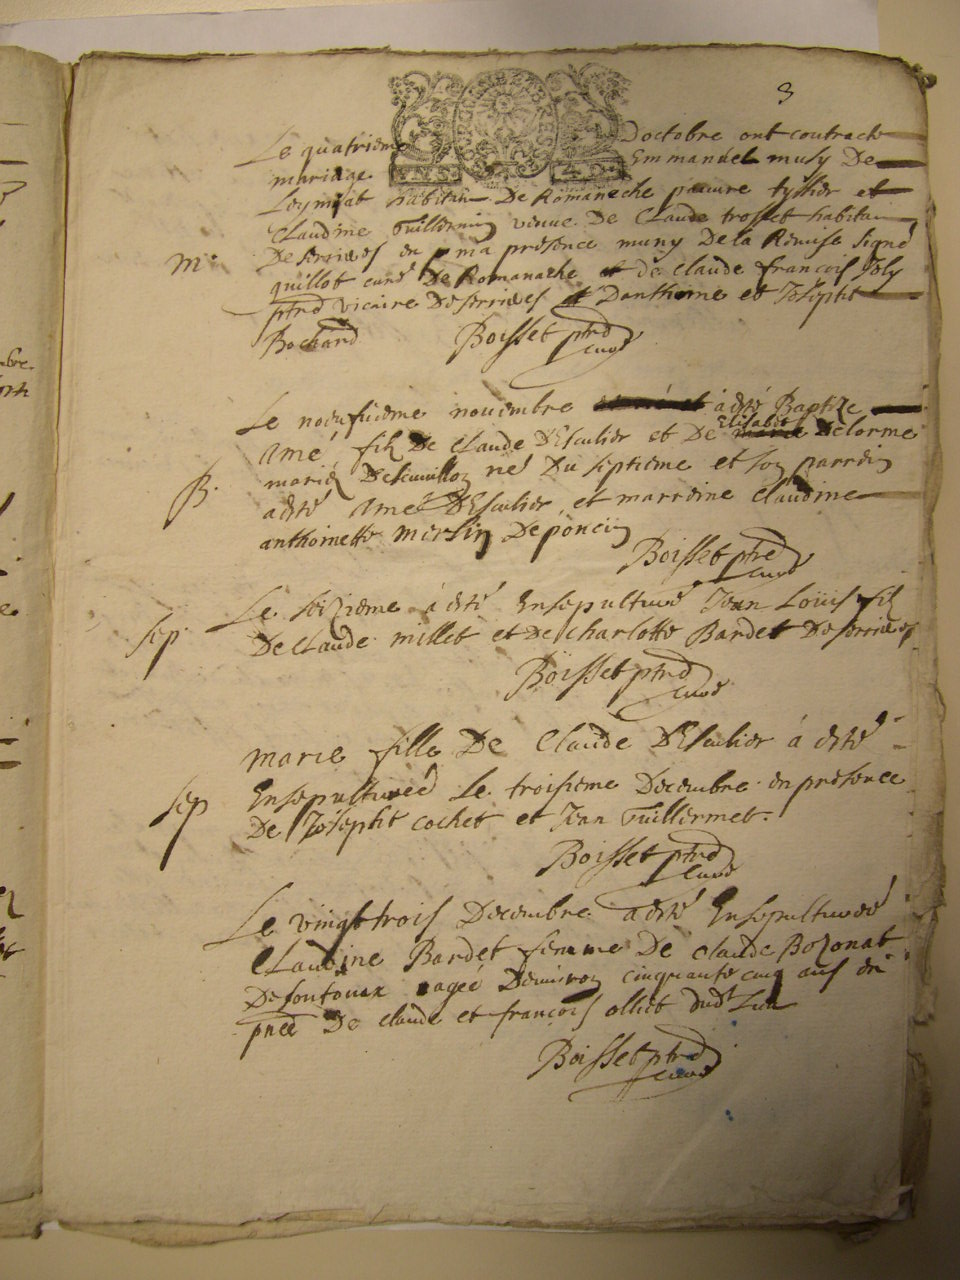 3
Le quatrieme doctobre ont contracte
mariage Emmanuel musy De
Leymiat habitan De Romaneche pauure tyssier et
Claudine Guillermin veuue De Claude trosset habitan
De serrieres en ma presence muny De la Remise signé
m. quillot curé De Romaneche et de claude françois Joly
ptre vicaire De serrieres Danthoine et Joseptt
Bochard Boisset ptre
curé
Le neufuieme nouembre à esté Baptize
Amé filz De Claude D'Esculier et De Elisabet Delorme
mariez né Du septieme et son parrein
B. a esté Amé D'Esculier et marreine Claudine
anthoinette merlin De poncin
Boisset ptre
curé
Le seizieme à esté Ensepulturé Jean Loüis filz
sep. De Claude millet et De charlotte Bardet De serrieres
Boisset ptre
curé
marie fille De Claude D'Esculier à esté
sep Ensepulturée Le troisieme Decembre en presence
De Joseptt cochet et Jean Guillermet.
Boisset ptre
curé
Le vingt trois Decembre a esté Ensepulturée
Claudine Bardet femme De claude Bozonat
De agée Denuiron cinquante cinq ans en
pnce De claude et françois olliet dudt Lieu
Boisset ptre
curé